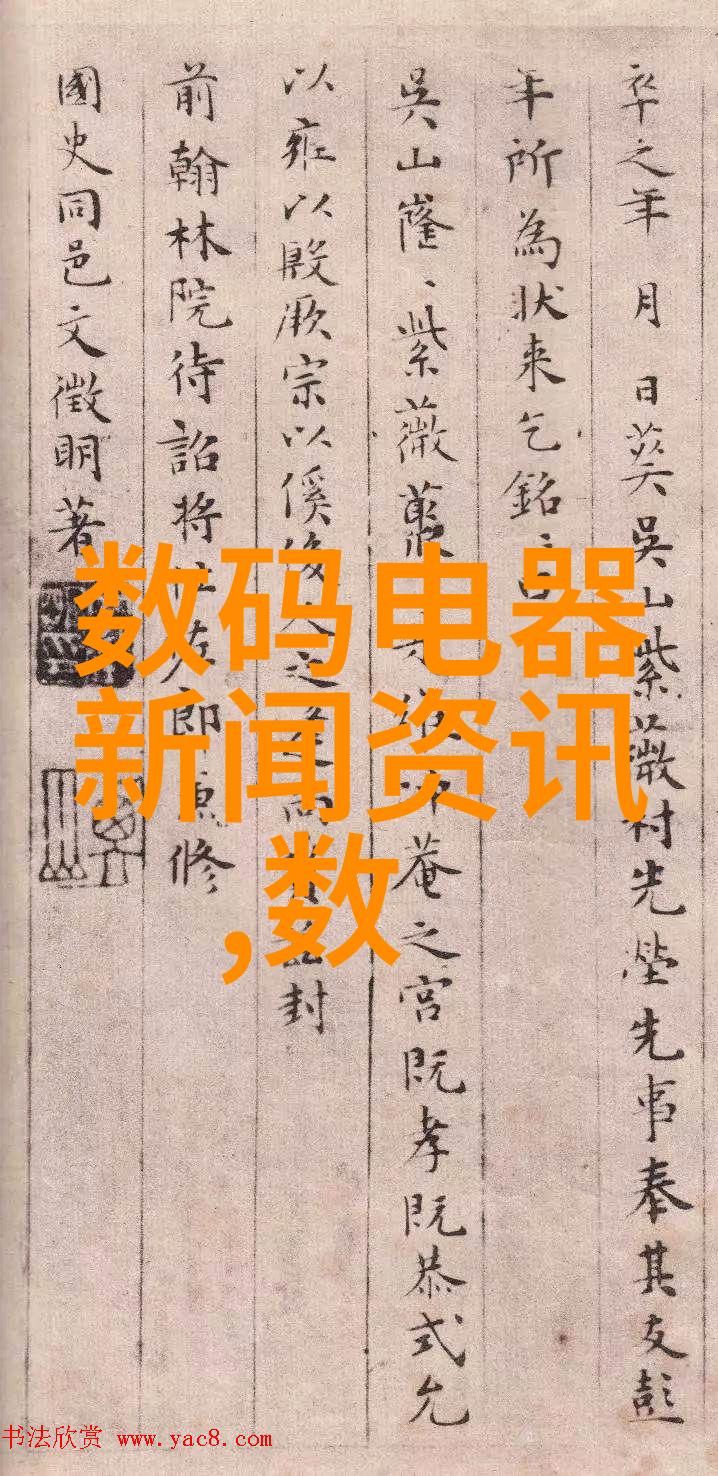 卒之年 月 日葬吳山紫薇村先塋先事奉其友彭
年所為狀来乞銘
吳山隆、紫薇 菴之宮既孝既恭式允
以雍以殷厥宗以傒後人之 封
前翰林院待詔將仕佐郎 修
國史同邑文徵明著
数码电器
新闻资讯
,数
书法欣赏 www.yac8.com